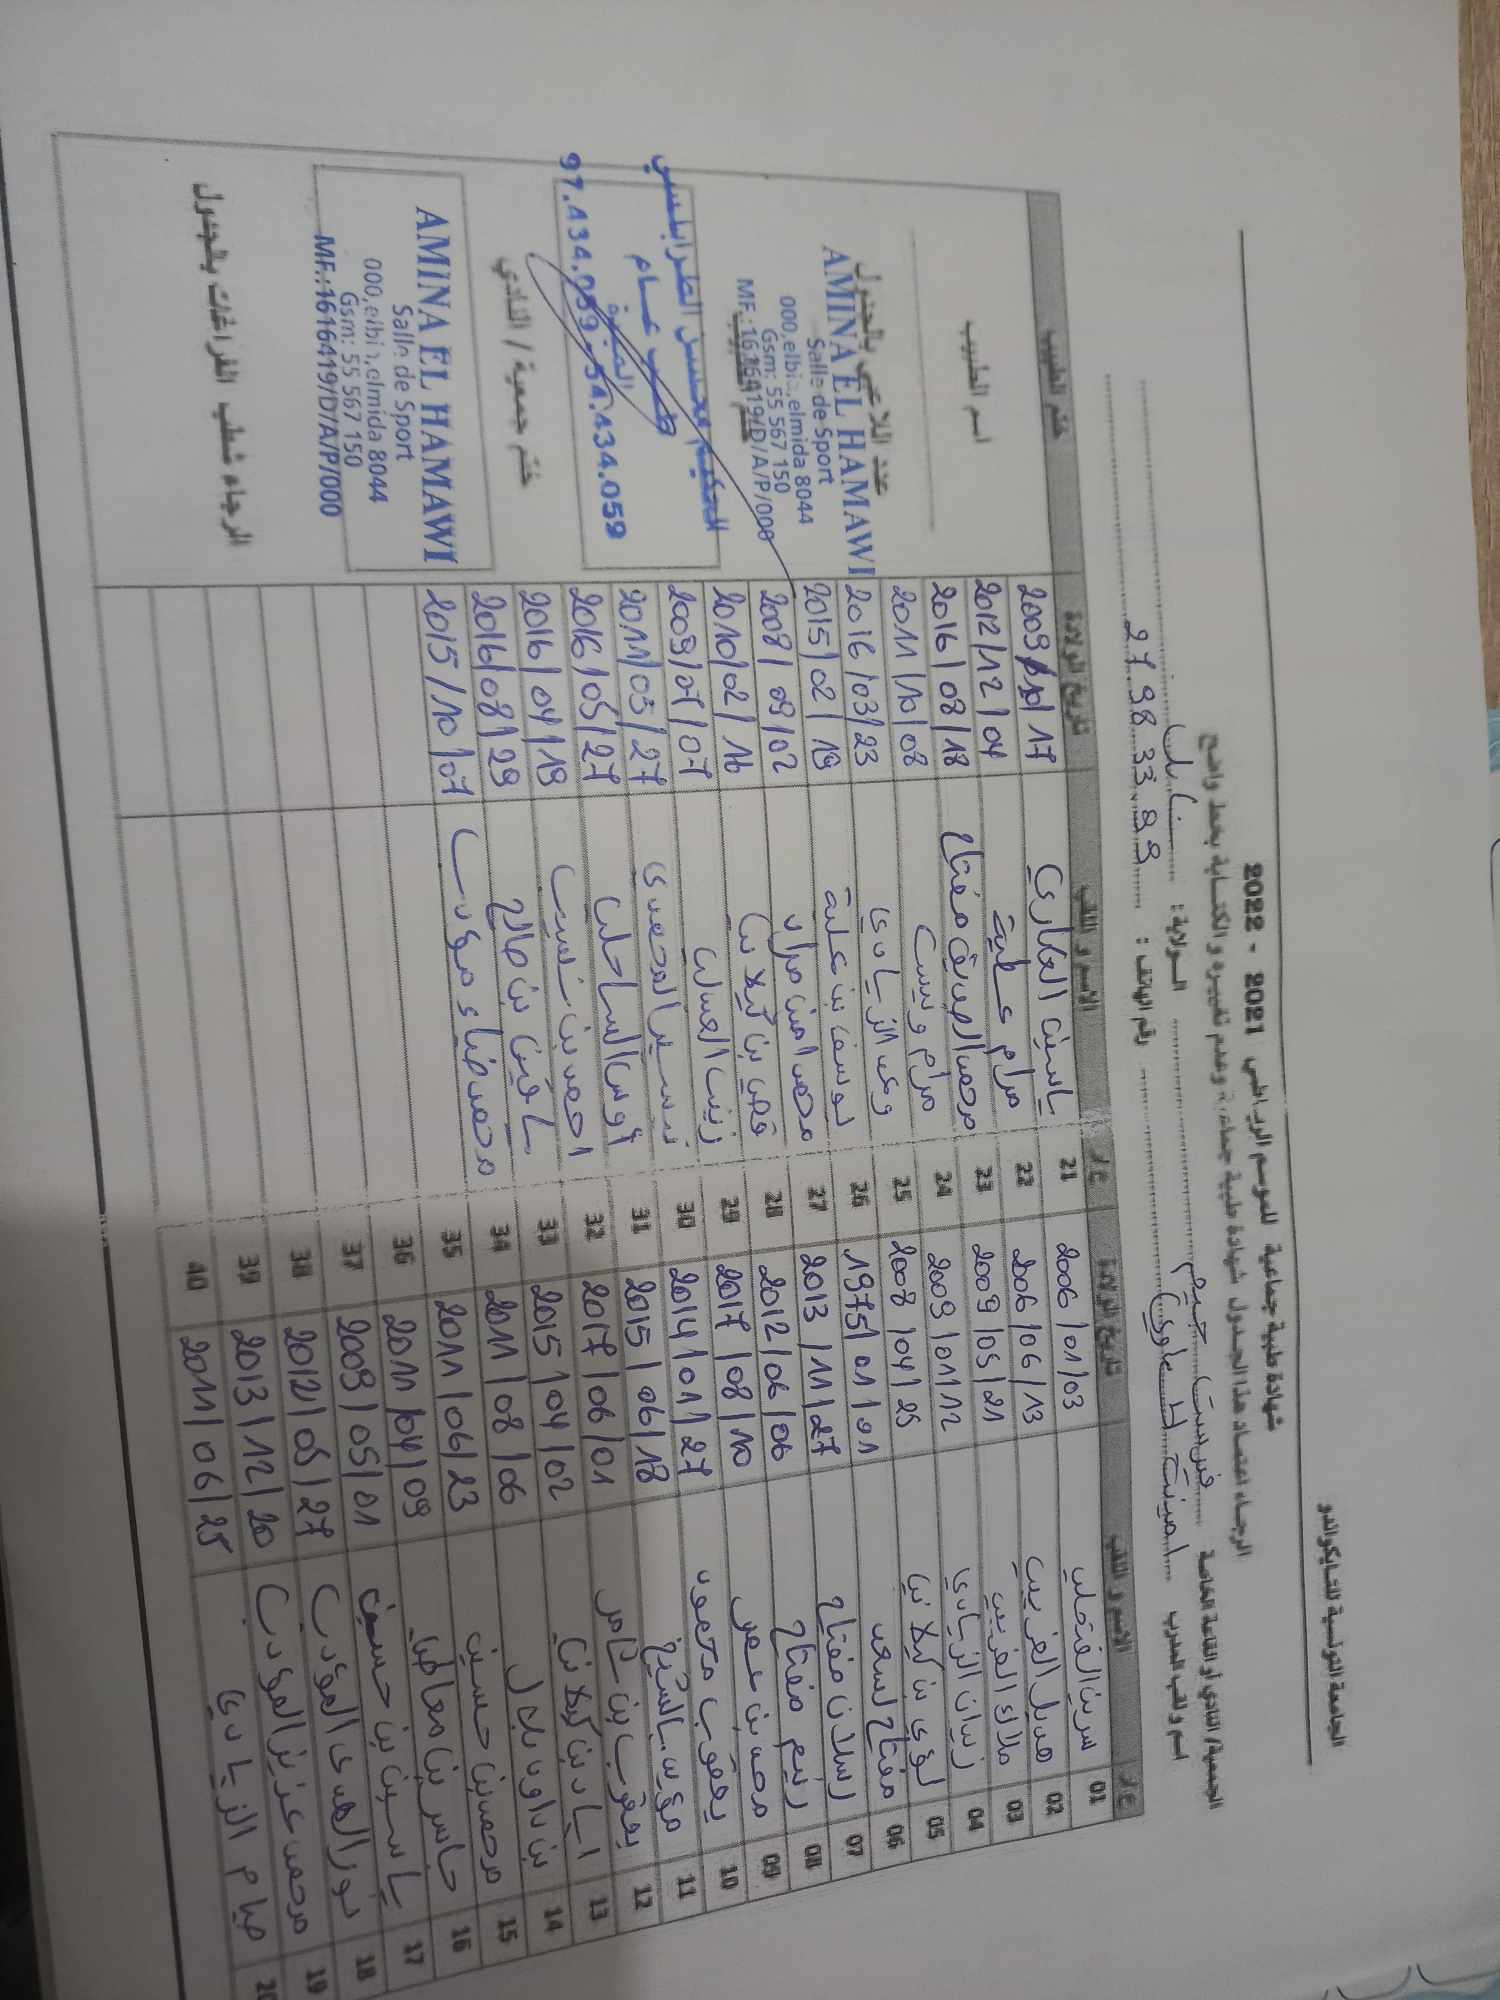 الجامعة التونسية للتايكواندو
شهادة طبية جماعية للموسم الرياضي 2021 - 2022
الرجاء اعتماد هذا الجدول شهادة طبية جماعية وعدم تغييره والكتابة بخط واضح
الجمعية/ النادي أو القاعة الخاصة الولاية : نابل
اسم و لقب المدرب امينة الحماوي رقم الهاتف : 27 98 33 89
ع/ر الاسم و اللقب تاريخ الولادة ع/ر الاسم و اللقب تاريخ الولادة ختم الطبيب
01 2006/01/03 21 2009/10/17
02 هديل الغريب 2006/06/13 22 مرام عطية 2012/12/04
03 ملاك الغريب 2009/05/21 23 محمد الصديق مفتاح 2016/08/18
04 زيدان الزيادي 2009/01/12 24 مرام ويس 2011/10/08
05 لؤي بن كيلاني 2008/04/25 25 وعد الزيادي 2016/03/23
06 مفتاح لسعد 1975/01/01 26 يوسف بن علية 2015/02/19
07 رسلان مفتاح 2013/11/27 27 محمد امين مراد 2008/09/02
08 رنيم مفتاح 2012/06/06 28 بن كيلاني 2010/02/16
09 محمد بن عمر 2017/08/10 29 زينب العسلي 2009/07/07
10 يعقوب محمود 2014/01/27 30 المحمدي 2011/05/27
11 2015/06/18 31 أوس الساحلي 2016/05/27
12 يعرب بن عامر 2017/06/01 32 احمد بن 2016/04/19
13 اياد بن كيلاني 2015/04/02 33 بن صالح 2016/08/29
14 بن داود بلال 2011/08/06 34 محمد ضياء مؤدب 2015/10/07
15 محمد بن حسين 2011/06/23 35
16 جاسر بن معاطي 2011/04/09 36
17 ياسين بن حسين 2009/05/01 37
18 نور الهدى المؤدب 2012/05/27 38
19 محمد عزيز المؤدب 2013/12/20 39
20 هيام الزيادي 2011/06/25 40
اسم الطبيب
عدد اللاعبين بالجدول
AMINA EL HAMAWI
Salle de Sport
000,elbir,elmida 8044
Gsm: 55 567 150
MF.:1616419/D/A/P/000
الحكيم محسن الطرابلسي
طب عام
الميدة
97.434.059 - 54.434.059
ختم جمعية / النادي
AMINA EL HAMAWI
Salle de Sport
000,elbir,elmida 8044
Gsm: 55 567 150
MF.:1616419/D/A/P/000
الرجاء شطب الفراغات بالجدول